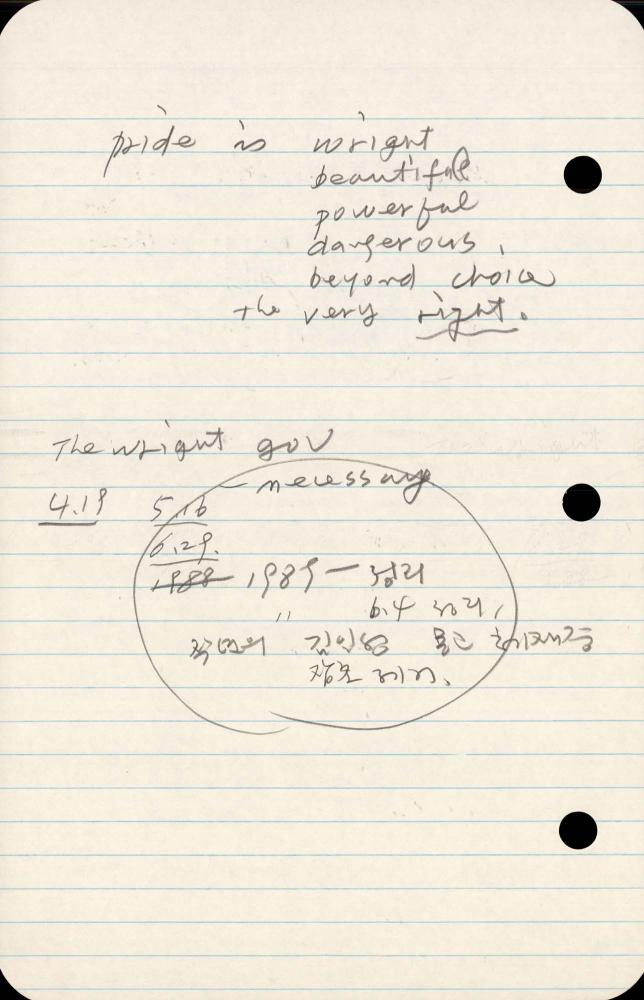 pride is wright
beautiful
powerful
dangerous,
beyond choice
the very right.
The wright gov
— necessary
4.19 5.16
6.29.
1988 1989 — 정리
" 6.4 정리,